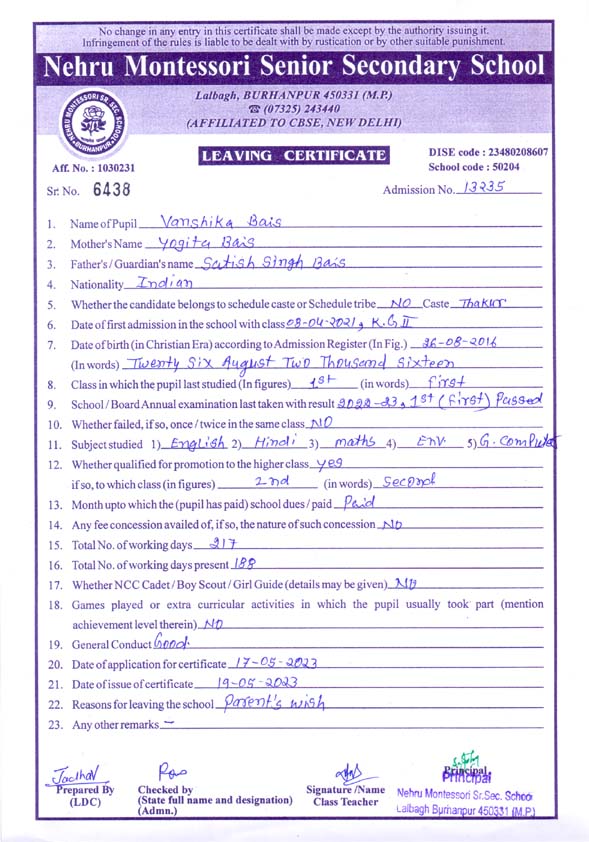 No change in any entry in this certificate shall be made except by the authority issuing it.
Infringement of the rules is liable to be dealt with by rustication or by other suitable punishment.
Nehru Montessori Senior Secondary School
Lalbagh, BURHANPUR 450331 (M.P.)
☎ (07325) 243440
(AFFILIATED TO CBSE, NEW DELHI)
NEHRU MONTESSORI SR. SEC. SCHOOL
BURHANPUR
LEAVING CERTIFICATE
DISE code : 23480208607
Aff. No. : 1030231
School code : 50204
Sr. No. 6438
Admission No. 13235
1. Name of Pupil Vanshika Bais
2. Mother's Name Yogita Bais
3. Father's / Guardian's name Satish Singh Bais
4. Nationality Indian
5. Whether the candidate belongs to schedule caste or Schedule tribe NO Caste Thakur
6. Date of first admission in the school with class 08-04-2021, K.G II
7. Date of birth (in Christian Era) according to Admission Register (In Fig.) 26-08-2016
(In words) Twenty Six August Two Thousand Sixteen
8. Class in which the pupil last studied (In figures) 1st (in words) First
9. School / Board Annual examination last taken with result 2022-23, 1st (First) Passed
10. Whether failed, if so, once / twice in the same class NO
11. Subject studied 1) English 2) Hindi 3) maths 4) Env. 5) G. Computer
12. Whether qualified for promotion to the higher class yes
if so, to which class (in figures) 2nd (in words) Second
13. Month upto which the (pupil has paid) school dues / paid Paid
14. Any fee concession availed of, if so, the nature of such concession NO
15. Total No. of working days 217
16. Total No. of working days present 188
17. Whether NCC Cadet / Boy Scout / Girl Guide (details may be given) NO
18. Games played or extra curricular activities in which the pupil usually took part (mention
achievement level therein) NO
19. General Conduct Good
20. Date of application for certificate 17-05-2023
21. Date of issue of certificate 19-05-2023
22. Reasons for leaving the school Parent's wish
23. Any other remarks —
Jadhav
Prepared By
(LDC)
Checked by
(State full name and designation)
(Admn.)
Signature /Name
Class Teacher
Principal
Principal
Nehru Montessori Sr.Sec. School
Lalbagh Burhanpur 450331 (M.P.)